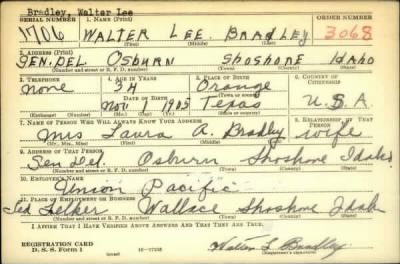 Bradley, Walter Lee
SERIAL NUMBER 1. NAME (Print)
1706 WALTER LEE BRADLEY 3068
(First) (Middle) (Last)
2. ADDRESS (Print)
GEN. DEL OSBURN SHOSHONE IDAHO
(Number and street or R. F. D. number) (Town) (County) (State)
3. TELEPHONE 4. AGE IN YEARS 5. PLACE OF BIRTH 6. COUNTRY OF CITIZENSHIP
none 34 Orange
DATE OF BIRTH
Nov 1 1905 Texas U.S.A
(Exchange) (Number) (Mo.) (Day) (Yr.) (State or country)
7. NAME OF PERSON WHO WILL ALWAYS KNOW YOUR ADDRESS 8. RELATIONSHIP OF THAT PERSON
Mrs Laura A. Bradley wife
(Mr., Mrs., Miss) (First) (Middle) (Last)
9. ADDRESS OF THAT PERSON
Gen Del. Osburn Shoshone Idaho
(Number and street or R. F. D. number) (Town) (County) (State)
10. EMPLOYER'S NAME
Union Pacific
11. PLACE OF EMPLOYMENT OR BUSINESS
Wallace Shoshone Idaho
(Number and street or R. F. D. number) (Town) (County) (State)
I AFFIRM THAT I HAVE VERIFIED ABOVE ANSWERS AND THAT THEY ARE TRUE.
REGISTRATION CARD
D. S. S. FORM 1
Walter L Bradley
(Registrant's signature)